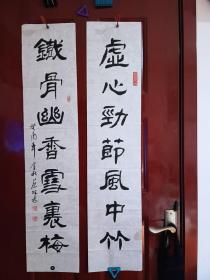 虚心勁節風中竹
鐵骨幽香雪裏梅